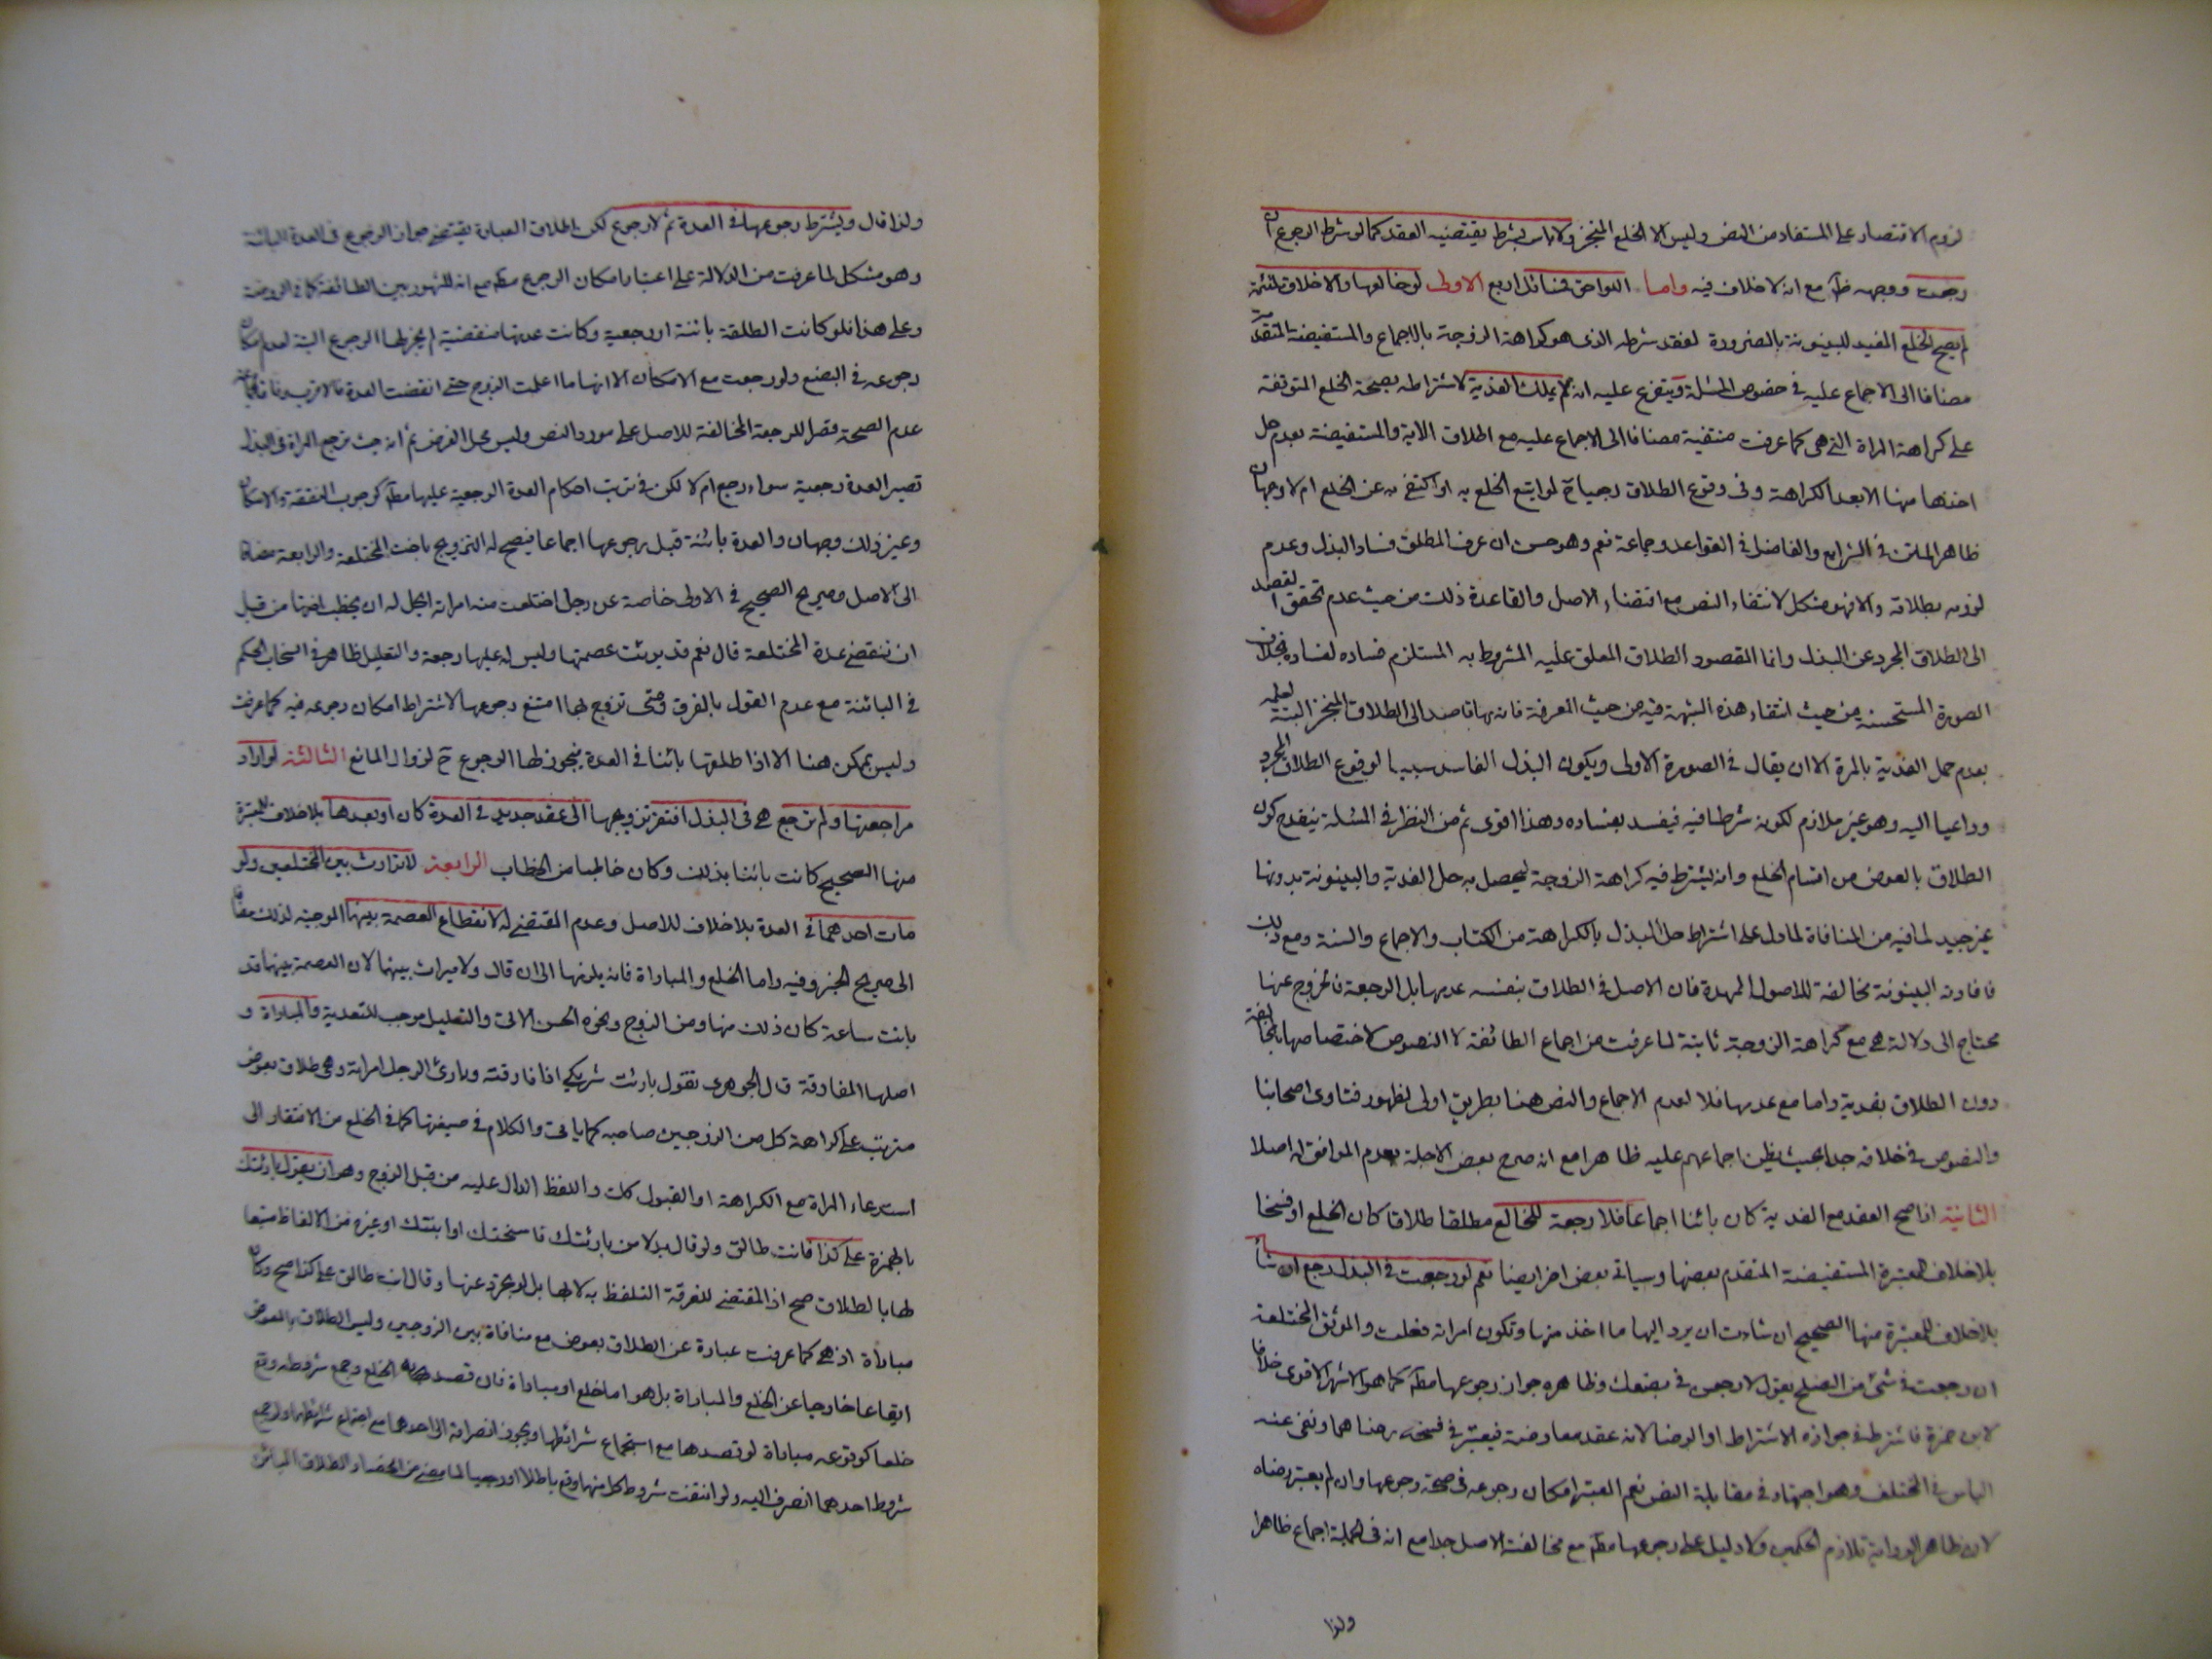 لزوم الاقتصار على المستفاد من النص وليس الا الخلع المنجز ولا باس بشرط يقتضيه العقد كما لو شرط الرجوع ان
رجعت ووجهه ظ مع انه لا خلاف فيه واما اللواحق فمسائل اربع الاولى لو خالعها والاخلاق ملتئمة
لم يصح الخلع المفيد للبينونة بالضرورة لفقد شرطه الذى هو كراهة الزوجة بالاجماع والمستفيضة المتقدمة
مضافا الى الاجماع عليه في خصوص المسئلة ويتفرع عليه انه لم يملك الفدية لاشتراطه بصحة الخلع المتوقفة
على كراهة المراة التى هى كما عرفت منتفية مضافا الى الاجماع عليه مع اطلاق الاية والمستفيضة بعدم حل
اخذها منها الا بعد الكراهة وفى وقوع الطلاق رجعيا ح لو اتبع الخلع به او اكتفى به عن الخلع ام لا وجهان
ظاهر الماتن في الشرايع والفاضل في القواعد وجماعة نعم وهو حسن ان عرف المطلق فساد البذل وعدم
لزومه بطلاقه والا فهو مشكل لانتفاء النص مع اقتضاء الاصل والقاعدة ذلك من حيث عدم تحقق القصد
الى الطلاق المجرد عن البذل وانما المقصود الطلاق المعلق عليه المشروط به المستلزم فساده لفساده بخلاف
الصورة المستحسنة من حيث انتفاء هذه الشبهة فيه من حيث المعرفة فانه بها قاصد الى الطلاق المنجز البتة لعلمه
بعدم حل الفدية بالمرة الا ان يقال في الصورة الاولى ويكون البذل الفاسد سببا لوقوع الطلاق المجرد
وداعيا اليه وهو غير ملازم لكونه شرطا فيه فيفسد بفساده وهذا اقوى ثم من النظر في المسئلة ينقدح كون
الطلاق بالعوض من اقسام الخلع وانه يشترط فيه كراهة الزوجة ليحصل به حل الفدية والبينونة بدونها
غير جيد لما فيه من المنافاة لما دل على اشتراط حل البذل بالكراهة من الكتاب والاجماع والسنة ومع ذلك
فافادته البينونة مخالفة للاصول الممهدة فان الاصل في الطلاق بنفسه عدمها بل الرجعة فالخروج عنها
محتاج الى دلالة هى مع كراهة الزوجة ثابتة لما عرفت من اجماع الطائفة لا النصوص لاختصاصها بالمخالعة
دون الطلاق بفدية واما مع عدمها فلا لعدم الاجماع والنص هنا بطريق اولى لظهور فتاوى اصحابنا
والنصوص في خلافه جدا بحيث يظن اجماعهم عليه ظاهرا مع انه صرح بعض الاجلة بعدم الموافق له اصلا
الثانية اذا صح العقد مع الفدية كان بائنا اجماعا فلا رجعة للمخالع مطلقا طلاقا كان الخلع او فسخا
بلا خلاف للمعتبرة المستفيضة المتقدم بعضها وسياتى بعض اخر ايضا نعم لو رجعت في البذل رجع ان شاء
بلا خلاف للمعتبرة منها الصحيح ان شاءت ان يرد اليها ما اخذ منها وتكون امراته فعلت والموثق المختلعة
ان رجعت في شئ من الصلح يقول لارجعن في بضعك وظاهره جواز رجوعها مطلقا كما هو الاشهر الاقوى خلافا
لابن حمزة فاشترط في جوازه الاشتراط او الرضا لانه عقد معاوضة فيعتبر في فسخه رضاهما ونفى عنه
الباس في المختلف وهو اجتهاد في مقابلة النص نعم المعتبر امكان رجوعه في صحة رجوعها وان لم يعتبر رضاه
لان ظاهر الرواية تلازم الحكمين ولا دليل على رجوعها مطلقا مع مخالفته الاصل جدا مع انه في الجملة اجماع ظاهرا
ولذا
ولذا قال ويشترط رجوعها في العدة ثم لا رجوع لكن اطلاق العبارة يقتضى جواز الرجوع في العدة البائنة
وهو مشكل لما عرفت من الدلالة على اعتبار امكان الرجوع مطلقا مع انه المشهور بين الطائفة كما في الروضة
وعلى هذا فلو كانت الطلقة بائنة او رجعية وكانت عدتها منقضية لم يجز لها الرجوع البتة لعدم امكان
رجوعه في البضع ولو رجعت مع الامكان الا انها ما اعلمت الزوج حتى انقضت العدة فالاقرب وفاقا لجماعة
عدم الصحة قصرا للرجعة المخالفة للاصل على مورد النص وليس محل الفرض ثم انه حيث ترجع المراة في البذل
تصير العدة رجعية سواء رجع ام لا لكن في ترتب احكام العدة الرجعية عليها مطلقا كوجوب النفقة والاسكان
وغير ذلك وجهان والعدة بائنة قبل رجوعها اجماعا فيصح له التزويج باخت المختلعة والرابعة مضافا
الى الاصل وصريح الصحيح في الاولى خاصة عن رجل اختلعت منه امراته ايحل له ان يخطب اختها من قبل
ان تنقضى عدة المختلعة قال نعم قد برئت عصمتها وليس له عليها رجعة والتعليل ظاهر في انسحاب الحكم
في البائنة مع عدم القول بالفرق ومتى تزوج بها امتنع رجوعها لاشتراط امكان رجوعه فيه كما عرفت
وليس بممكن هنا الا اذا طلقها بائنا في العدة فيجوز لها الرجوع ح لزوال المانع الثالثة لو اراد
مراجعتها ولم ترجع هى في البذل افتقر تزويجها الى عقد جديد في العدة كان او بعدها بلا خلاف للمعتبرة
منها الصحيح كانت بائنا بذلك وكان خاطبا من الخطاب الرابعة لا توارث بين المختلعين ولو
مات احدهما في العدة بلا خلاف للاصل وعدم المقتضى له لانقطاع العصمة بينهما الموجبة لذلك مضافا
الى صريح الخبر وفيه واما الخلع والمباراة فانه يلزمها الى ان قال ولا ميراث بينهما لان العصمة بينهما قد
بانت ساعة كان ذلك منها ومن الزوج ونحوه الحسن الاتى والتعليل موجب للتعدية والمباراة و
اصلها المفارقة قال الجوهرى تقول بارئت شريكى اذا فارقته وبارئ الرجل امراته وهى طلاق بعوض
مترتب على كراهة كل من الزوجين صاحبه كما ياتى والكلام في صيغتها كما في الخلع من الافتقار الى
استدعاء المراة مع الكراهة او القبول كك واللفظ الدال عليه من قبل الزوج وهو ان يقول بارئتك
بالهمزة على كذا فانت طالق ولو قال بدلا من بارئتك فاسختك او ابنتك او غيره من الالفاظ متبعا
لها بالطلاق صح اذ المقتضى للفرقة التلفظ به لا بها بل لو تجرد عنها وقال انت طالق على كذا صح وكان
مباراة اذ هى كما عرفت عبارة عن الطلاق بعوض مع منافاة بين الزوجين وليس الطلاق بالعوض
ايقاعا خارجا عن الخلع والمباراة بل هو اما خلع او مباراة فان قصد به الخلع وجمع شروطه وقع
خلعا كوقوعه مباراة لو قصدها مع استجماع شرائطها ويجوز انصرافه الى احدهما مع اجتماع شرائطهما ولو جمع
شروط احدهما انصرف اليه ولو انتفت شروط كل منهما وقع باطلا او رجعيا لما مضى من انحصار الطلاق البائن